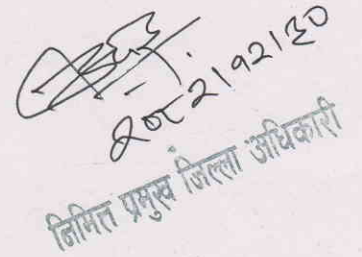 २०८२।१२।३०
निमित्त प्रमुख जिल्ला अधिकारी